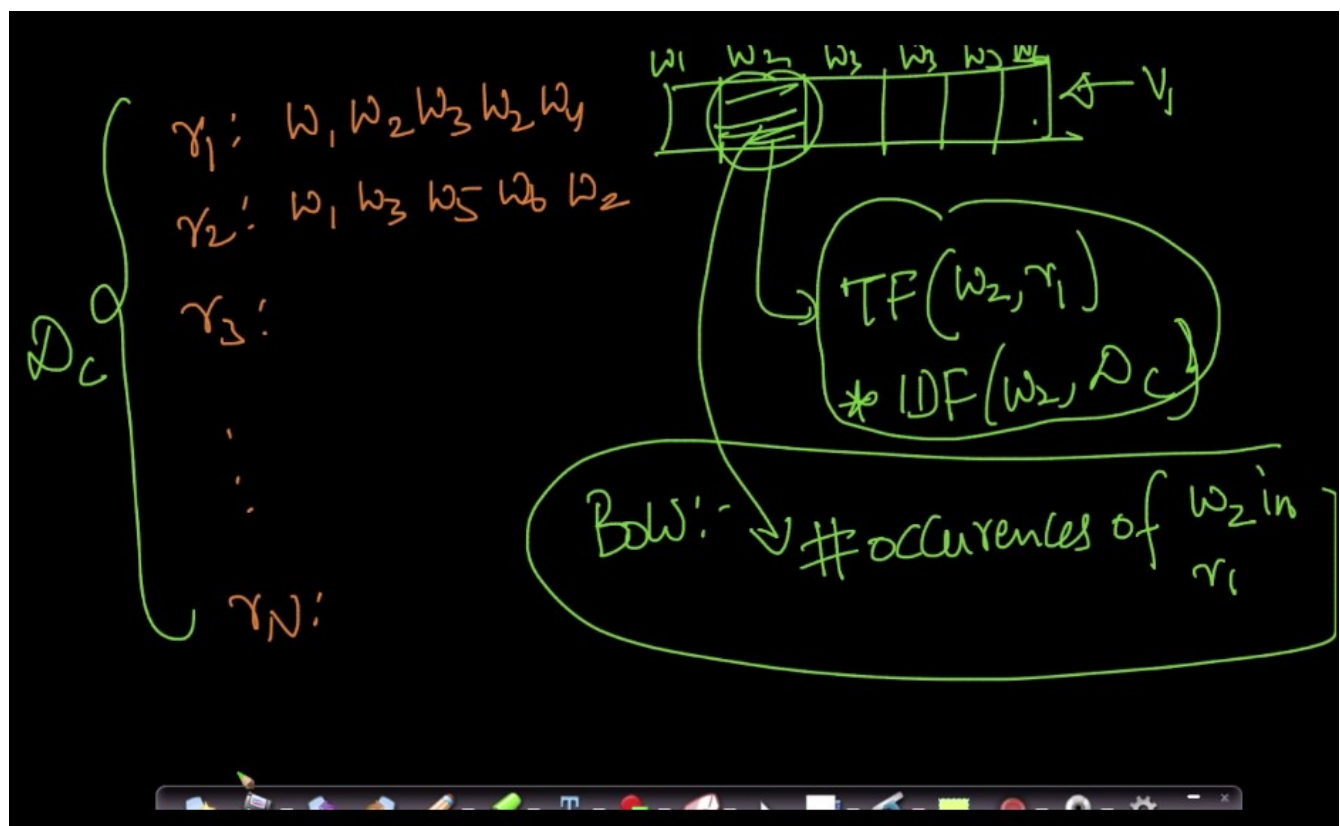 r₁: W₁ W₂ W₃ W₂ W₄
r₂: W₁ W₃ W₅ W₆ W₂
r₃:
rN:
Dc
W1 W2 W3 W3 W3
V₁
TF(W₂, r₁)
* IDF(W₂, Dc)
BoW:- #occurences of W₂ in
r₁